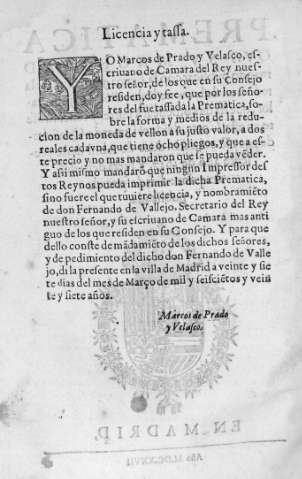 Licencia y tassa.
YO Marcos de Prado y Velasco, es-
criuano de Camara del Rey nues-
tro señor, de los que en su Consejo
residen, doy fee, que por los seño-
res del fue tassada la Prematica, so-
bre la forma y medios de la redu-
cion de la moneda de vellon a su justo valor, a dos
reales cada vna, que tiene ocho pliegos, y que a es-
te precio y no mas mandaron que se pueda vēder.
Y assi mismo mandarō que ningun Impressor des
tos Reynos pueda imprimir la dicha Prematica,
sino fuere el que tuuiere licencia, y nombramiēto
de don Fernando de Vallejo. Secretario del Rey
nuestro señor, y su escriuano de Camara mas anti
guo de los que residen en su Consejo. Y para que
dello conste de mādamiēto de los dichos señores,
y de pedimiento del dicho don Fernando de Valle
jo, di la presente en la villa de Madrid a veinte y sie
te dias del mes de Março de mil y seisciētos y vein
te y siete años.
Marcos de Prado
y Velasco.
EN MADRID,
Año M.DC.XXVII